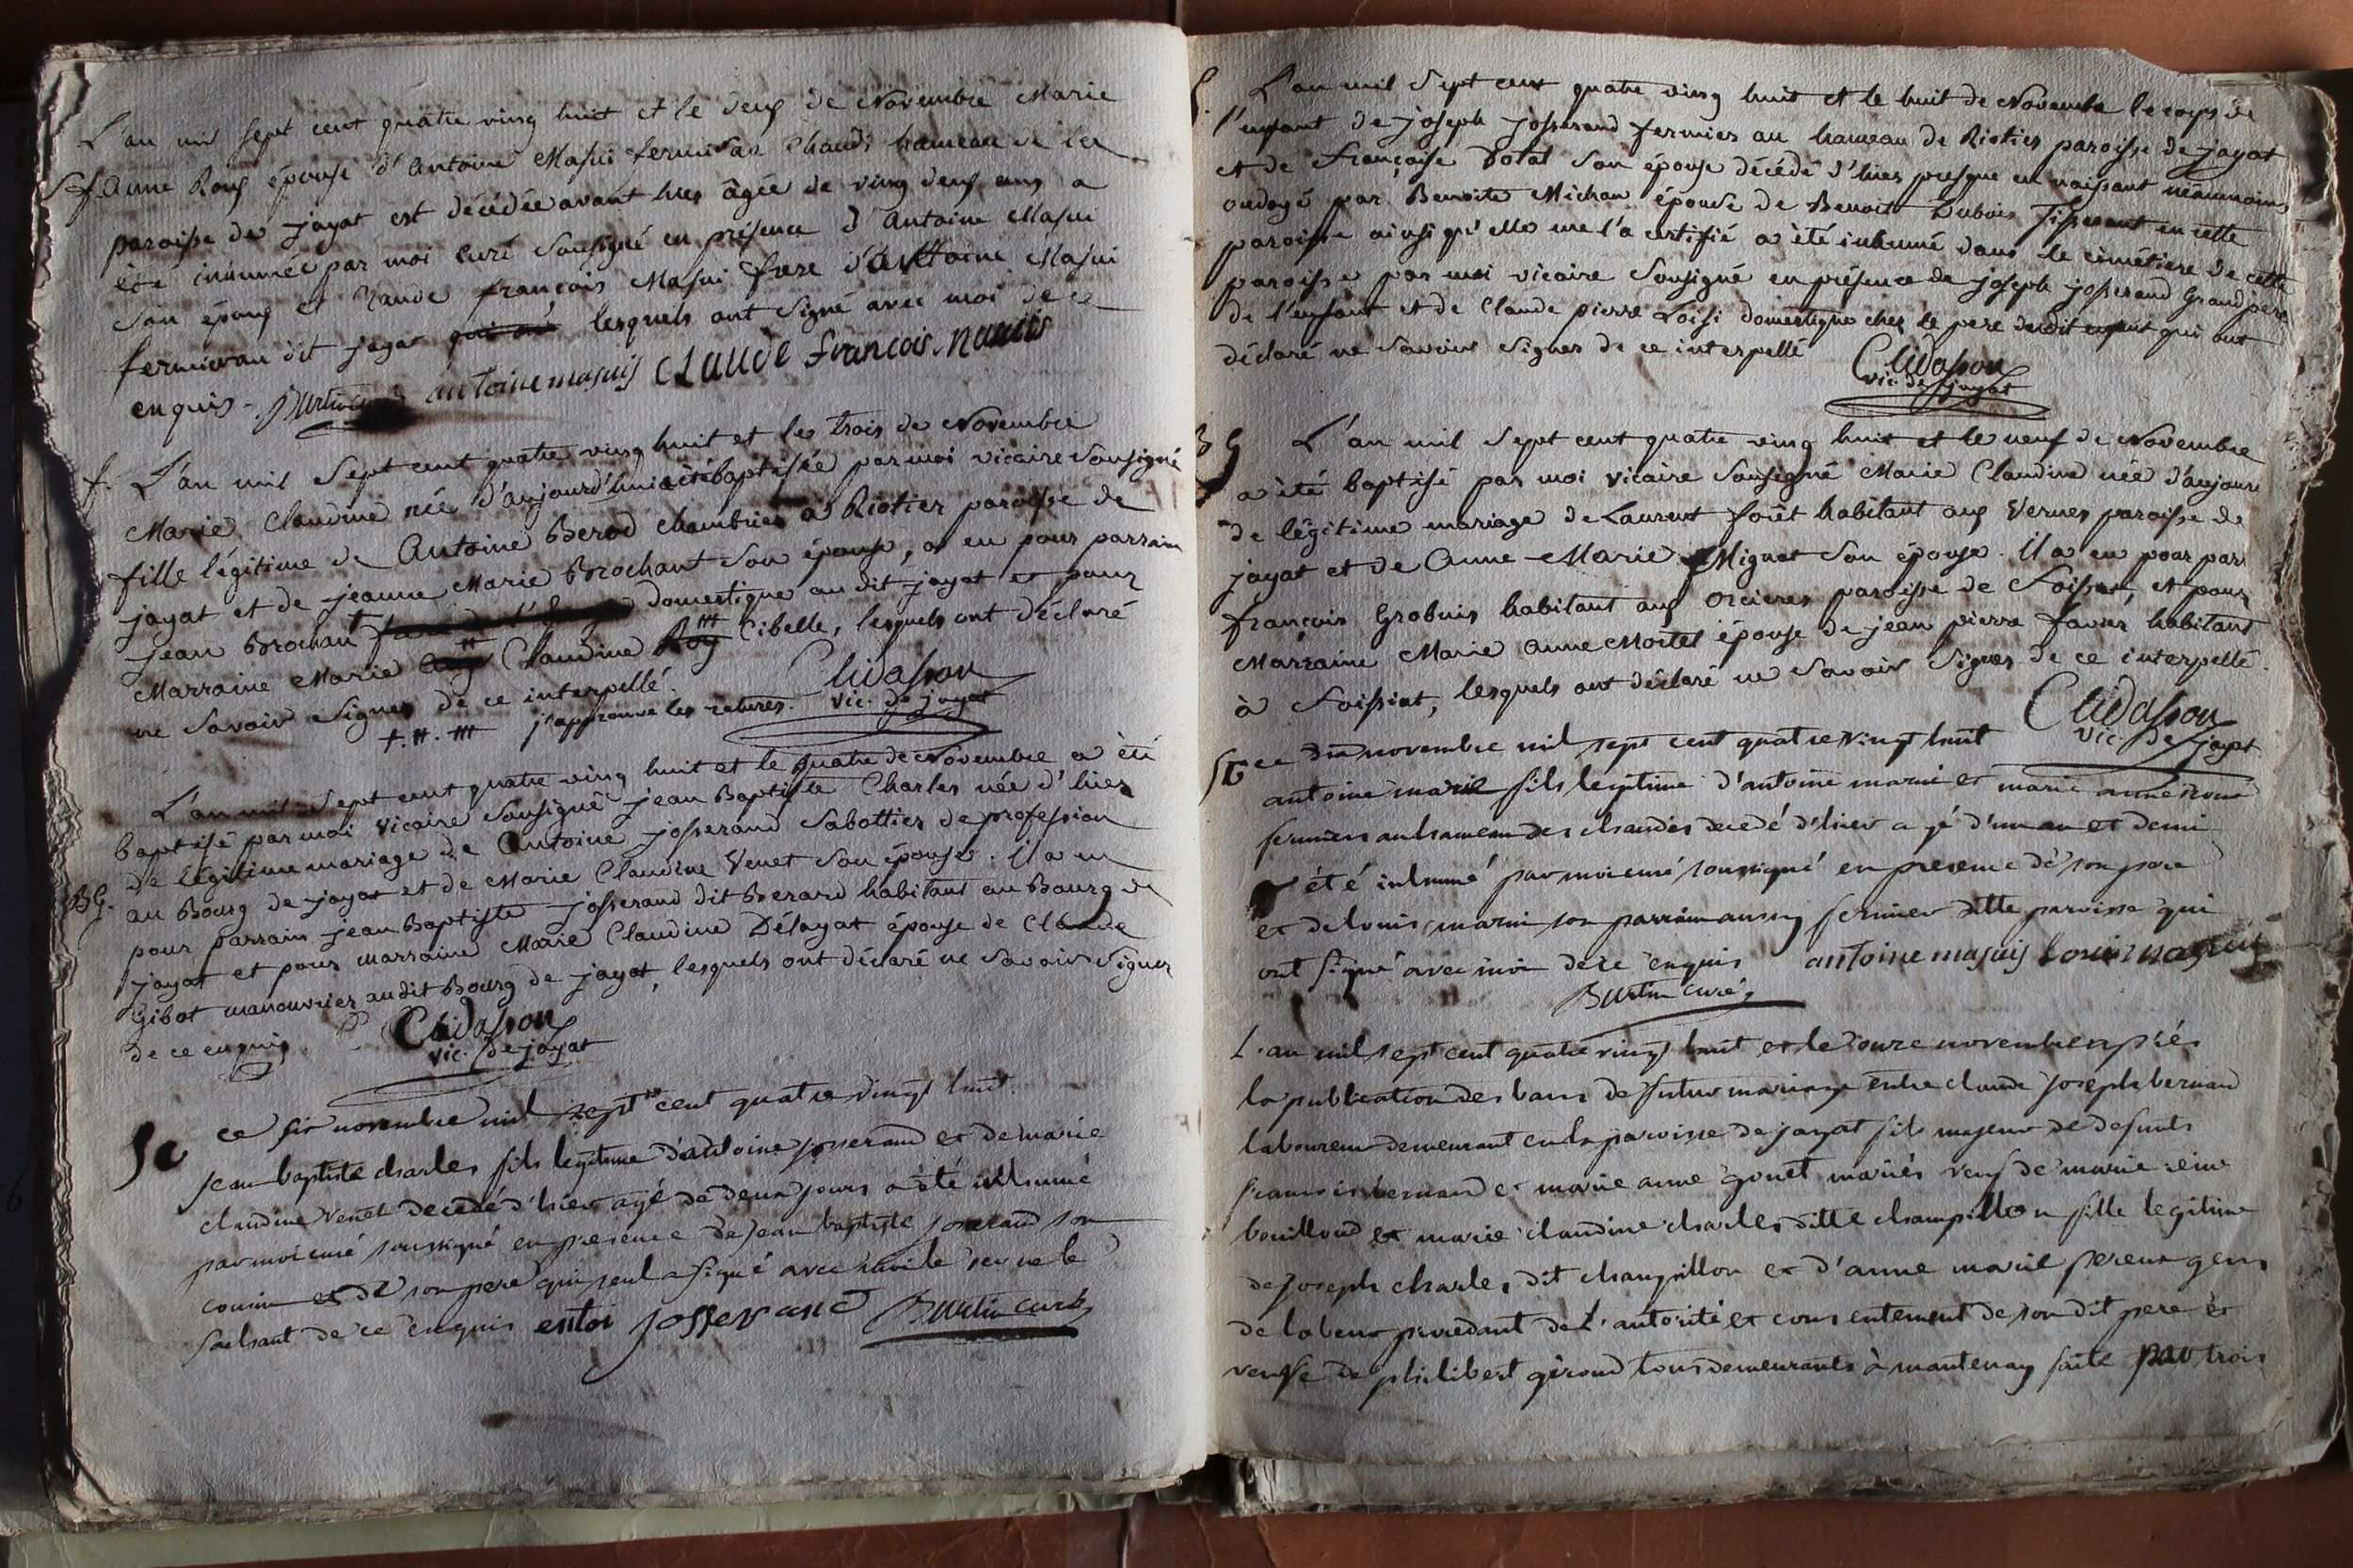 L'an mil sept cent quatre ving huit et le deux de Novembre Marie
Sf. Anne Roux épouse d'Antoine Masui fermier aux Chaudi hameau de les
paroisse de jayat est décédée avant hier âgée de ving deux ans a
été inhumée par moi curé soussigné en présence d'Antoine Masui
son époux et Claude françois Masui frere d'Antoine Masui
fermier au dit jayat qui ont lesquels ont signé avec moi de ce
enquis - Burtin curé antoine masuis CLAUDE françois masuis
f. L'an mil sept cent quatre ving huit et le trois de Novembre
Marie Claudine née d'aujourd'hui a été baptisée par moi vicaire soussigné
fille légitime de Antoine Berod chambrier a Riotier paroisse de
jayat et de jeanne Marie Brochant son épouse, a eu pour parrain
jean Brochant domestique au dit jayat et pour
Marraine Marie Claudine Roy Cibelle, lesquels ont déclaré
ne savoir signer de ce interpellé.
+. ++. +++ j'approuve les ratures. Clidasson
vic. de jayat
L'an mil sept cent quatre ving huit et le quatre de Novembre a été
baptisé par moi vicaire soussigné jean Baptiste Charles née d'hier
de légitime mariage de Antoine josserand sabottier de profession
BG. au Bourg de jayat et de Marie Claudine Venet son épouse. il a eu
pour parrain jean Baptiste josserand dit Berard habitant au Bourg de
jayat et pour marraine Marie Claudine Délayat épouse de Claude
Gibot manouvrier audit Bourg de jayat, lesquels ont déclaré ne savoir signer
de ce enquis. Clidasson
vic. de jayat
Se ce six novembre mil sept cent quatre vingt huit
jean baptiste charles fils legitime d'antoine josserand et de marie
claudine venet decedé d'hier agé de deux jours a été inhumé
par moi curé soussigné en presence de jean baptiste josserand son
cousin et de son pere qui seul a signé avec nous le
sachant de ce enquis entoi josserand Burtin curé
S. L'an mil sept cent quatre ving huit et le huit de Novembre le corps de
l'enfant de joseph josserand fermier au hameau de Riotier paroisse de jayat
et de françoise Dotal son épouse décédé d'hier presque en naissant néanmoins
ondoyé par Benoite Michau épouse de Benoit Dubois Tisserant en cette
paroisse ainsi qu'elle me l'a certifié a été inhumé dans le cimétiere de cette
paroisse par moi vicaire soussigné en présence de joseph josserand Grand pere
de l'enfant et de Claude pierre Loisi domestique chez le pere dudit enfant qui ont
déclaré ne savoir signer de ce interpellé Clidasson
vic. de jayat
BG L'an mil sept cent quatre ving huit et le neuf de Novembre
a été baptisé par moi vicaire soussigné Marie Claudine née d'aujour
de légitime mariage de Laurent forêt habitant aux Vernes paroisse de
jayat et de Anne-Marie Mignot son épouse. il a eu pour par
françois Grobuis habitant aux Orcieres paroisse de Foissiat, et pour
Marraine Marie Anne Mortel épouse de jean pierre favier habitant
à Foissiat, lesquels ont déclaré ne savoir signer de ce interpellé.
Clidasson
vic. de jayat
ce dix novembre mil sept cent quatre vingt huit
antoine marie fils legitime d'antoine masui et marie anne roux
fermiers au hameau des chaudis decedé d'hier agé d'un an et demi
a été inhumé par moi curé soussigné en presence de son pere
et de louis masui son parrain aussy fermier dette paroisse qui
ont signé avec moi de ce enquis antoine masuis Louis masuis
Burtin curé
L'an mil sept cent quatre vingt huit et le onze novembre après
la publication des bans de futur mariage entre claude joseph bernard
laboureur demeurant en la paroisse de jayat fils majeur de defunts
francois bernard et marie anne gonet mariés veuf de marie reine
bouilloud et marie claudine charles ditte champillon fille legitime
de joseph charles dit champillon et d'anne marie pereux gens
de labeur procedant de l'autorité et consentement de son dit pere et
veuve de philibert géroud tous demeurants à mantenay faite par trois